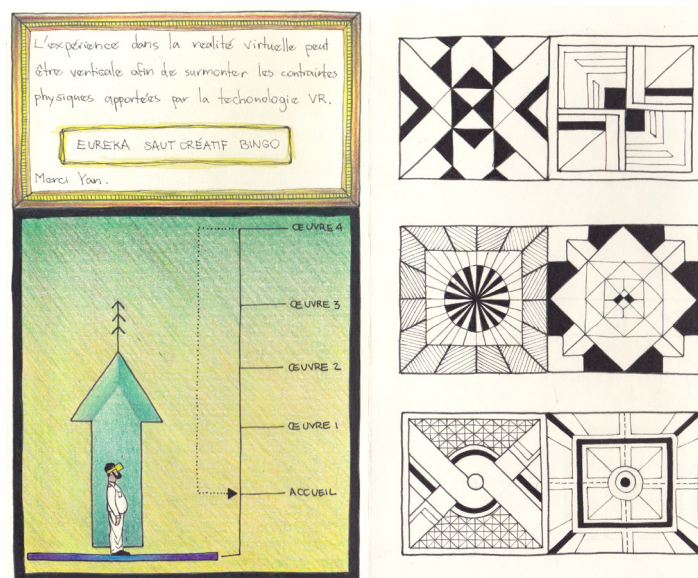 L'expérience dans la realité virtuelle peut
être verticale afin de surmonter les contraintes
physiques apportées par la techonologie VR.
EUREKA SAUT CRÉATIF BINGO
Merci Yan.
ŒUVRE 4
ŒUVRE 3
ŒUVRE 2
ŒUVRE 1
ACCUEIL